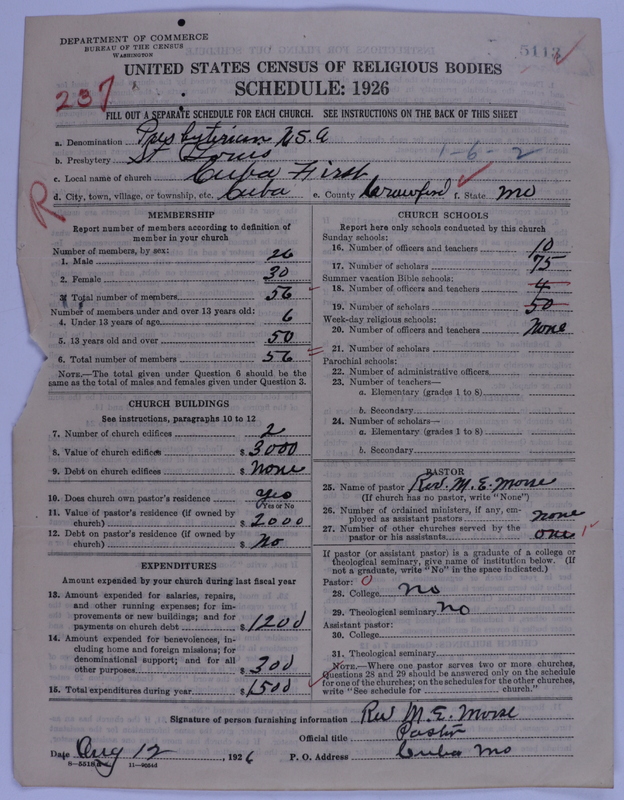 DEPARTMENT OF COMMERCE
BUREAU OF THE CENSUS
WASHINGTON
5113
UNITED STATES CENSUS OF RELIGIOUS BODIES
SCHEDULE: 1926
237
FILL OUT A SEPARATE SCHEDULE FOR EACH CHURCH. SEE INSTRUCTIONS ON THE BACK OF THIS SHEET
a. Denomination Presbyterian U S A
b. Presbytery St Louis 1-6-2
c. Local name of church Cuba First
d. City, town, village, or township, etc. Cuba e. County Crawford f. State Mo
R
MEMBERSHIP
Report number of members according to definition of
member in your church
Number of members, by sex:
1. Male 26
2. Female 30
3. Total number of members 56
Number of members under and over 13 years old:
4. Under 13 years of age 6
5. 13 years old and over 50
6. Total number of members 56
NOTE.—The total given under Question 6 should be the
same as the total of males and females given under Question 3.
CHURCH BUILDINGS
See instructions, paragraphs 10 to 12
7. Number of church edifices 2
8. Value of church edifices $ 3000
9. Debt on church edifices $ None
10. Does church own pastor's residence yes
(Yes or No
11. Value of pastor's residence (if owned by
church) $ 2000
12. Debt on pastor's residence (if owned by
church) $ No
EXPENDITURES
Amount expended by your church during last fiscal year
13. Amount expended for salaries, repairs,
and other running expenses; for im-
provements or new buildings; and for
payments on church debt $ 1200
14. Amount expended for benevolences, in-
cluding home and foreign missions; for
denominational support; and for all
other purposes $ 300
15. Total expenditures during year $ 1500
CHURCH SCHOOLS
Report here only schools conducted by this church
Sunday schools:
16. Number of officers and teachers 10
17. Number of scholars 75
Summer vacation Bible schools:
18. Number of officers and teachers 4
19. Number of scholars 50
Week-day religious schools:
20. Number of officers and teachers None
21. Number of scholars
Parochial schools:
22. Number of administrative officers
23. Number of teachers—
a. Elementary (grades 1 to 8)
b. Secondary
24. Number of scholars—
a. Elementary (grades 1 to 8)
b. Secondary
PASTOR
25. Name of pastor Rev. M. E. Morse
(If church has no pastor, write "None")
26. Number of ordained ministers, if any, em-
ployed as assistant pastors none
27. Number of other churches served by the
pastor or his assistants one 1
If pastor (or assistant pastor) is a graduate of a college or
theological seminary, give name of institution below. (If
not a graduate, write "No" in the space indicated.)
Pastor: 0
28. College no
29. Theological seminary no
Assistant pastor:
30. College
31. Theological seminary
NOTE.—Where one pastor serves two or more churches,
Questions 28 and 29 should be answered only on the schedule
for one of the churches; on the schedules for the other churches,
write "See schedule for church."
Signature of person furnishing information Rev M. E. Morse
Official title Pastor
Date Aug 12, 1926 P. O. Address Cuba Mo